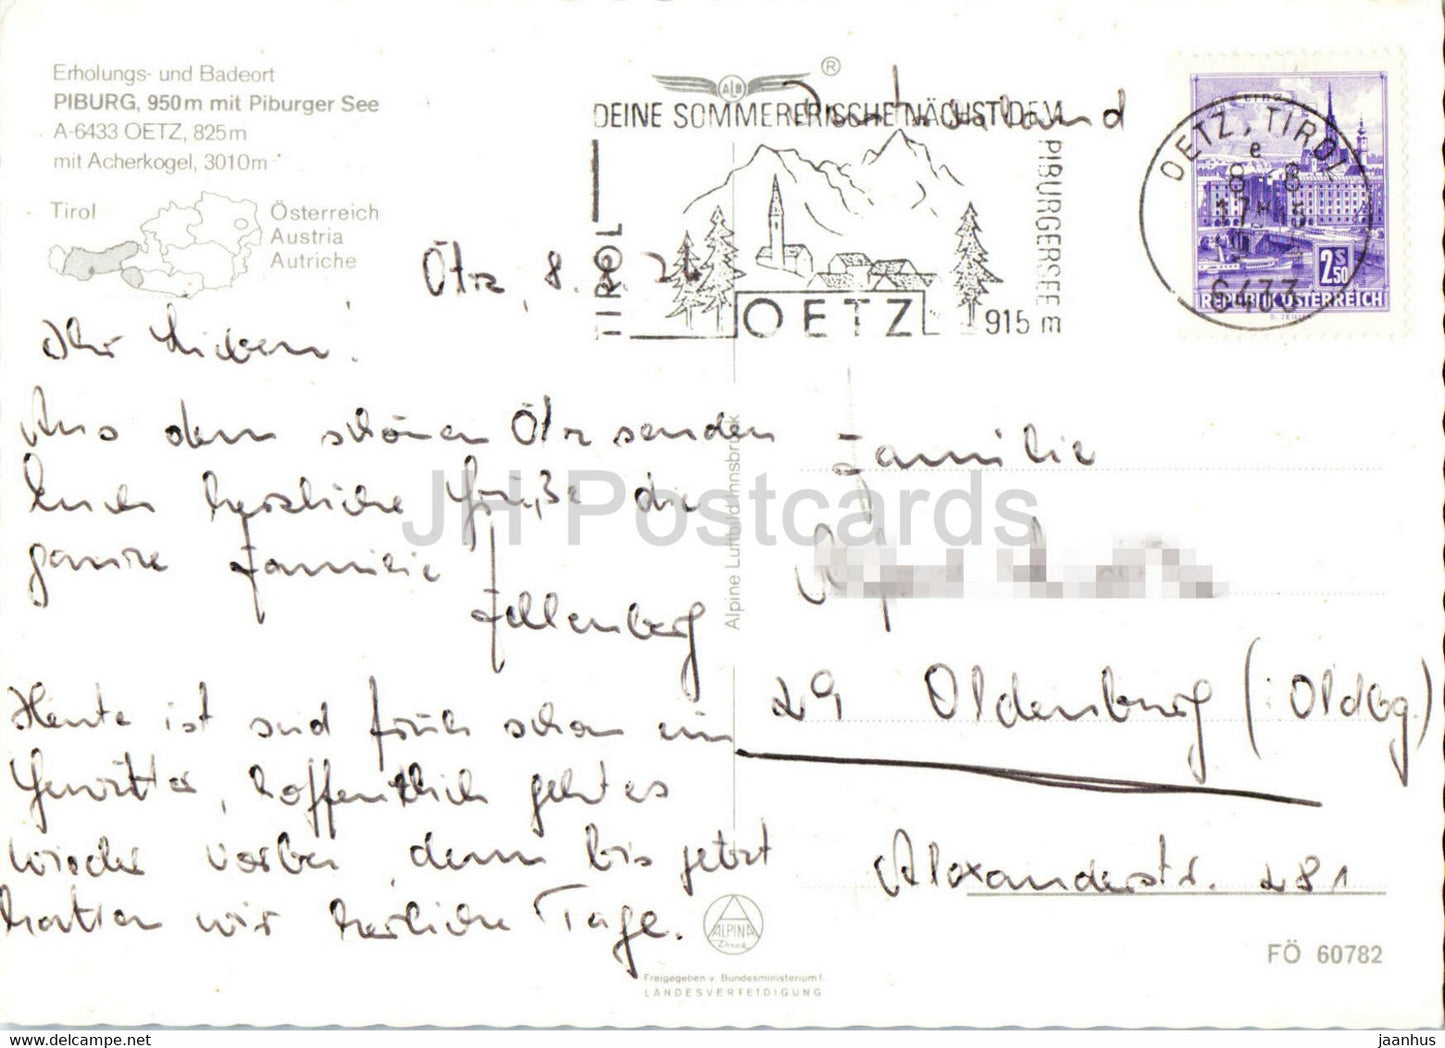 Erholungs- und Badeort
PIBURG, 950m mit Piburger See
A-6433 OETZ, 825m
mit Acherkogel, 3010m
Tirol
Österreich
Austria
Autriche
ALB
®
DEINE SOMMERFRISCHE NÄCHST DEM
PIBURGERSEE
915 m
TIROL
OETZ
OETZ, TIROL
e
8 8
6433
2 S 50
REPUBLIK ÖSTERREICH
Ötz, 8.
Ihr Lieben!
Aus dem schönen Ötz senden
Euch herzliche Grüße die
ganze Familie
Fellenberg
Heute ist seid früh schon ein
Gewitter, hoffentlich geht es
wieder vorbei, denn bis jetzt
hatten wir herliche Tage.
Familie
29 Oldenburg (:Oldbg.)
Alexanderstr. 281
Alpine Luftbild Innsbruck
ALPINA
Druck
Freigegeben v. Bundesministerium f.
LANDESVERTEIDIGUNG
FÖ 60782
JH Postcards
www.jhpostcards.com
jaanhus